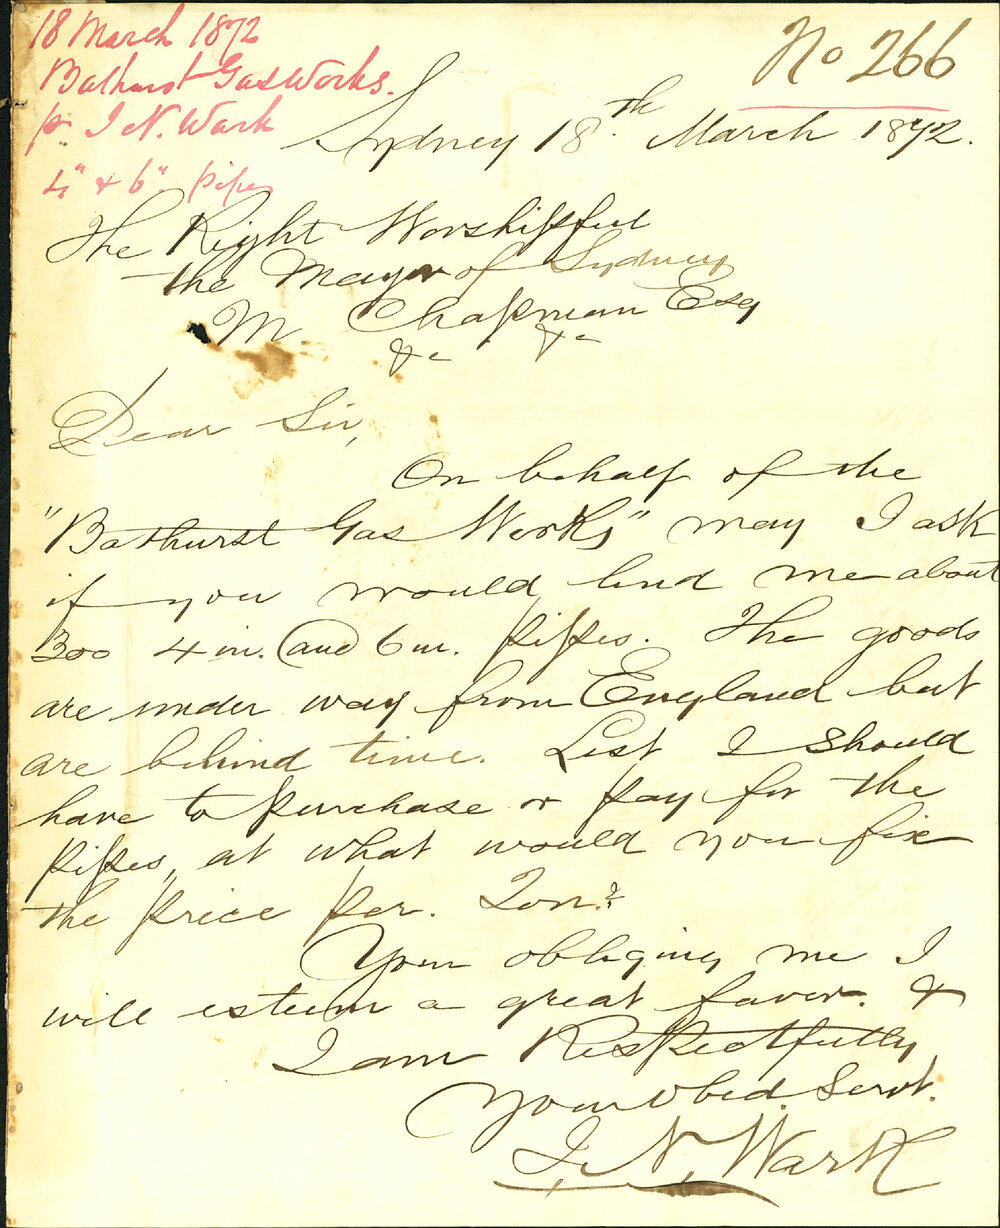 18 March 1872
Bathurst Gas Works.
p. J N. Wark
4" & 6" pipes
No 266
Sydney 18th March 1872.
The Right Worshipful
the Mayor of Sydney
M. Chapman Esq
&c &c
Dear Sir,
On behalf of the
"Bathurst Gas Works" may I ask
if you would lend me about
300 4 in. and 6 in. pipes. The goods
are under way from England but
are behind time. Lest I should
have to purchase or pay for the
pipes, at what would you fix
the price per. Ton?
Your obliging me I
will esteem a great favor. &
I am Respectfully
Your Obed. Servt.
J. N. Wark